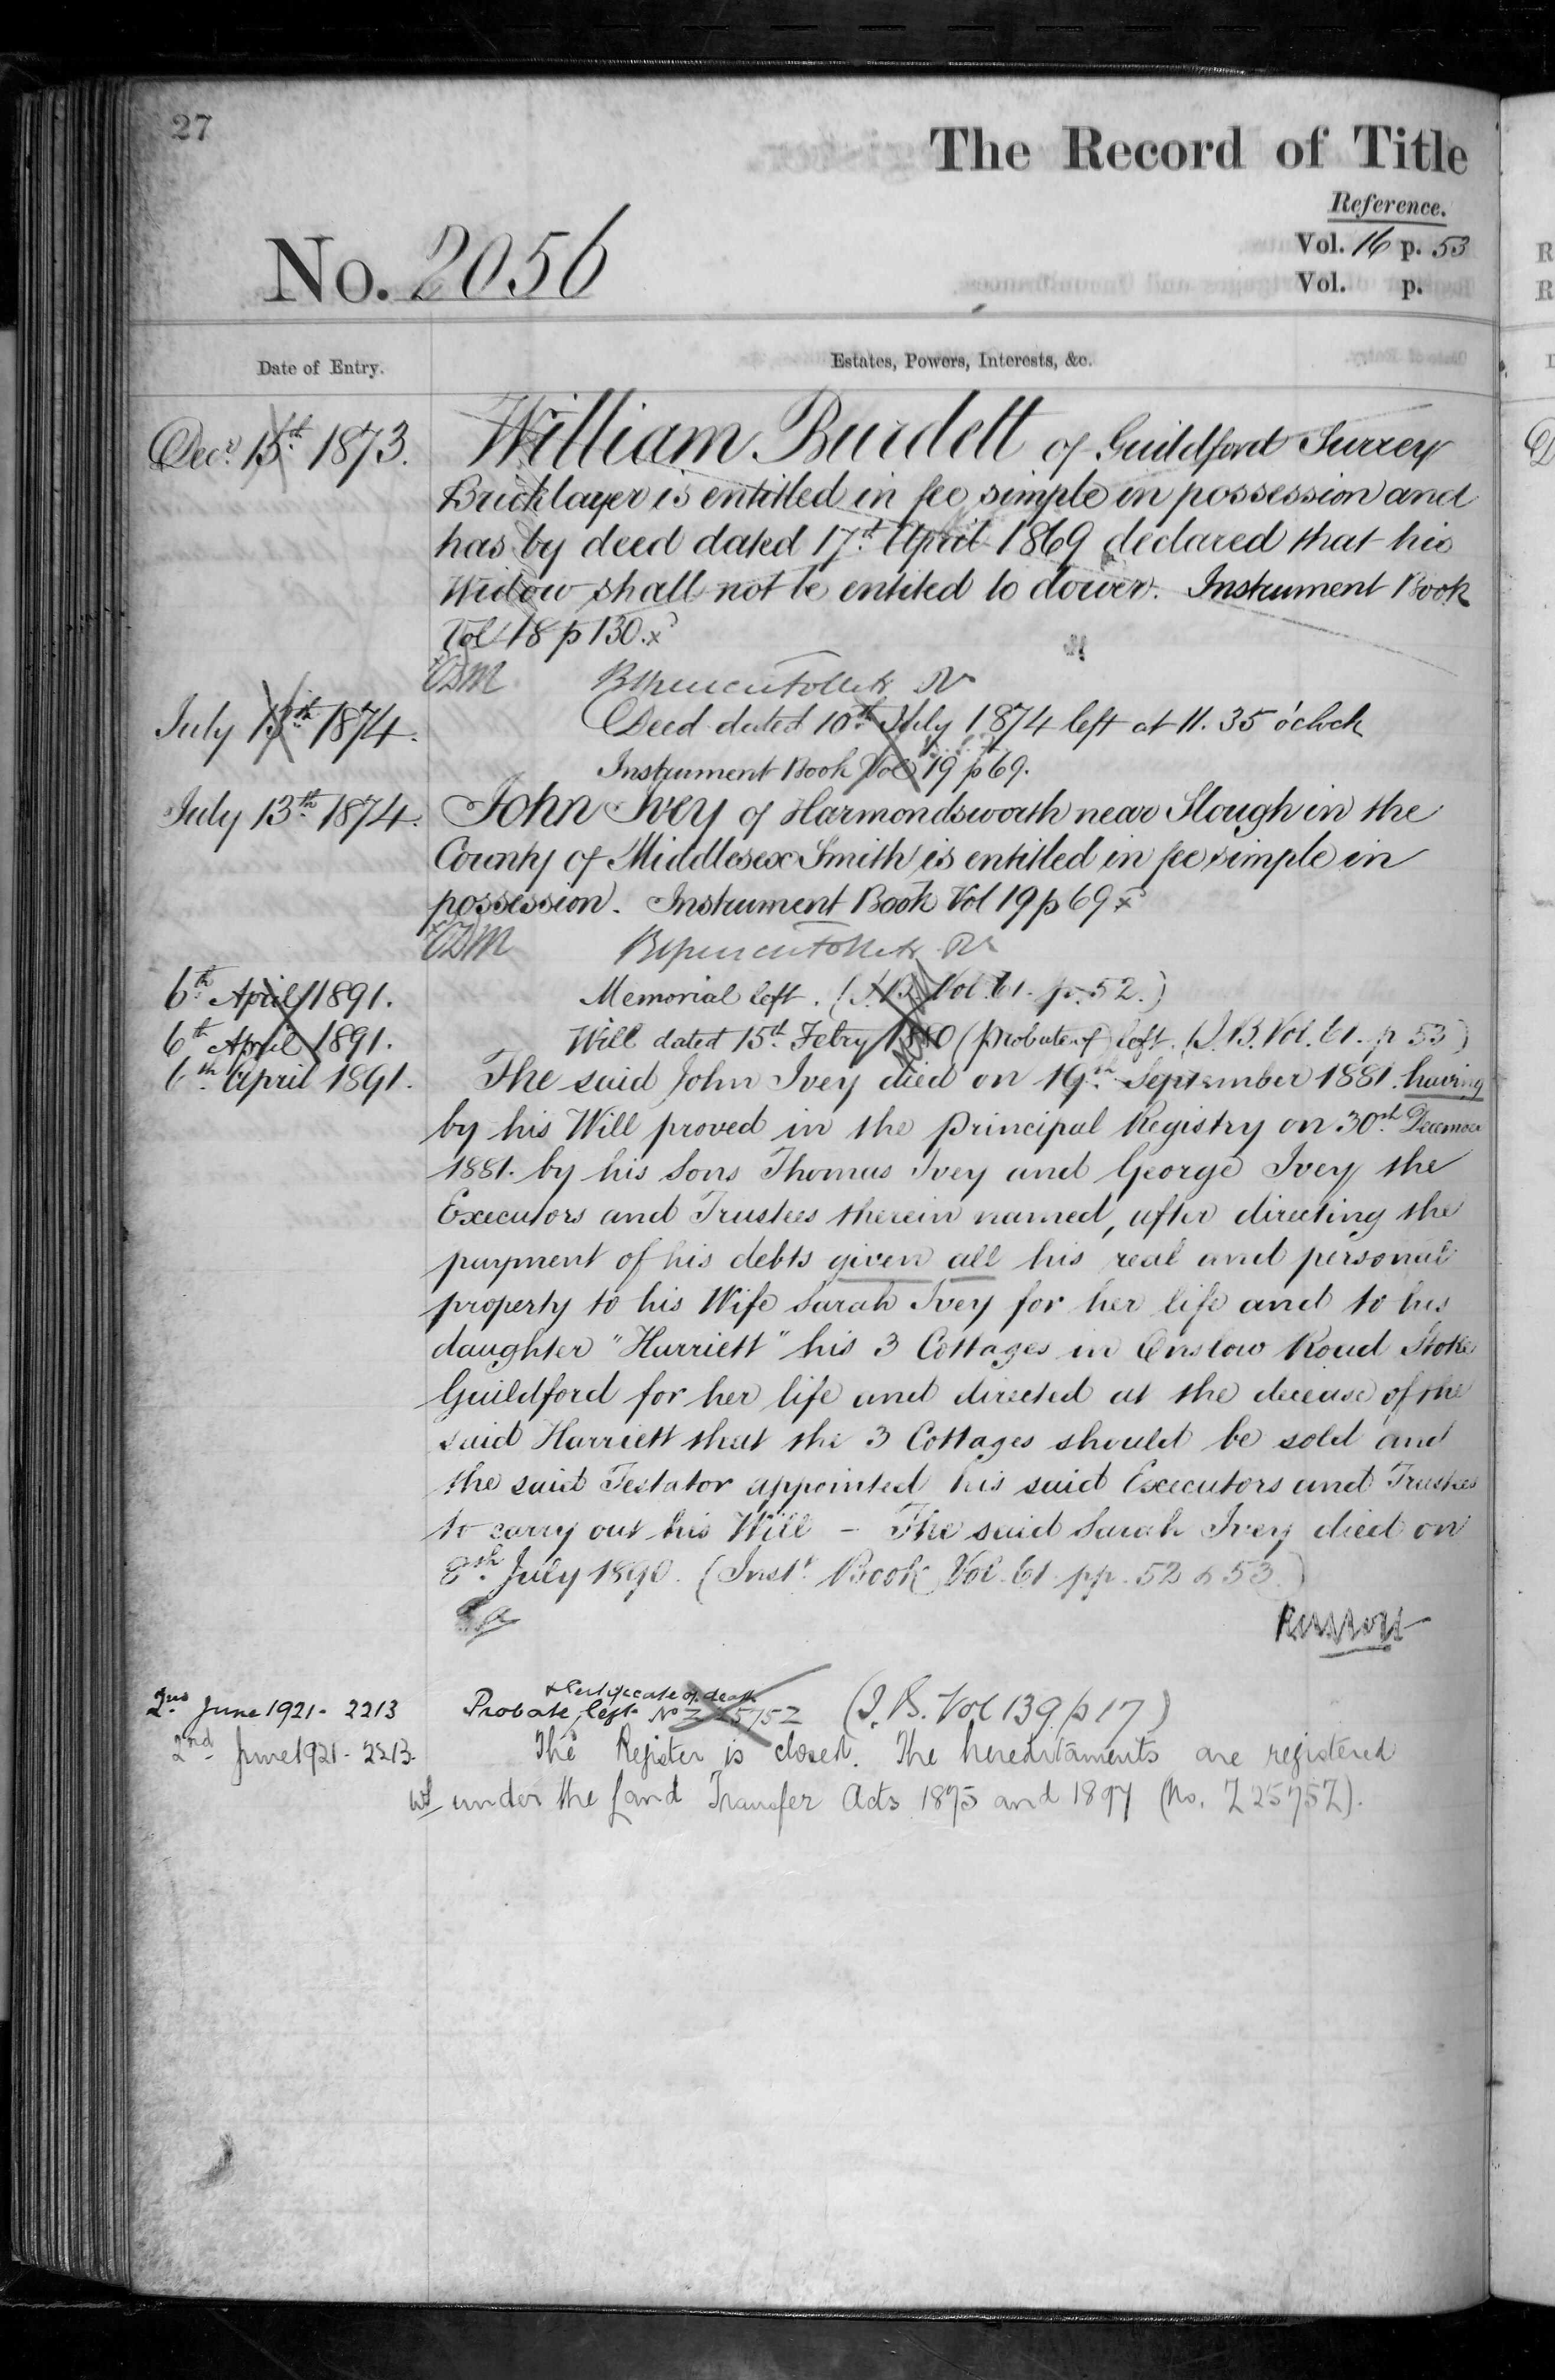 27
The Record of Title
Reference.
Vol. 16 p. 53
No. 2056
Vol. p.
Date of Entry.
Estates, Powers, Interests, &c.
Decr. 15th 1873.
William Burdett of Guildford Surrey
Bricklayer is entitled in fee simple in possession and
has by deed dated 17th April 1869 declared that his
Widow shall not be entitled to dower. Instrument Book
Vol 18 p 130. x
July 13th 1874.
Deed dated 10th July 1874 left at 11. 35 o'clock
Instrument Book Vol 19 p 69.
July 13th 1874.
John Ivey of Harmondsworth near Slough in the
County of Middlesex Smith is entitled in fee simple in
possession. Instrument Book Vol 19 p 69 x
6th April 1891.
Memorial left. (I.B. Vol. 61. p. 52.)
6th April 1891.
Will dated 15th Febry 1880 (Probate of) left. (I.B. Vol. 61. p 53)
6th April 1891.
The said John Ivey died on 19th September 1881. having
by his Will proved in the Principal Registry on 30th December
1881. by his Sons Thomas Ivey and George Ivey the
Executors and Trustees therein named, after directing the
payment of his debts given all his real and personal
property to his Wife Sarah Ivey for her life and to his
daughter "Harriett" his 3 Cottages in Onslow Road Stoke
Guildford for her life and directed at the decease of the
said Harriett that the 3 Cottages should be sold and
the said Testator appointed his said Executors and Trustees
to carry out his Will – The said Sarah Ivey died on
8th July 1890. (Inst. Book Vol. 61. pp. 52 & 53.)
2nd June 1921 - 2213
& Certificate of death
Probate, left No Z 25752 (I.B. Vol 139 p 17)
2nd June 1921 - 2213.
The Register is closed. The hereditaments are registered
under the Land Transfer Acts 1875 and 1897 (No. Z 25752).